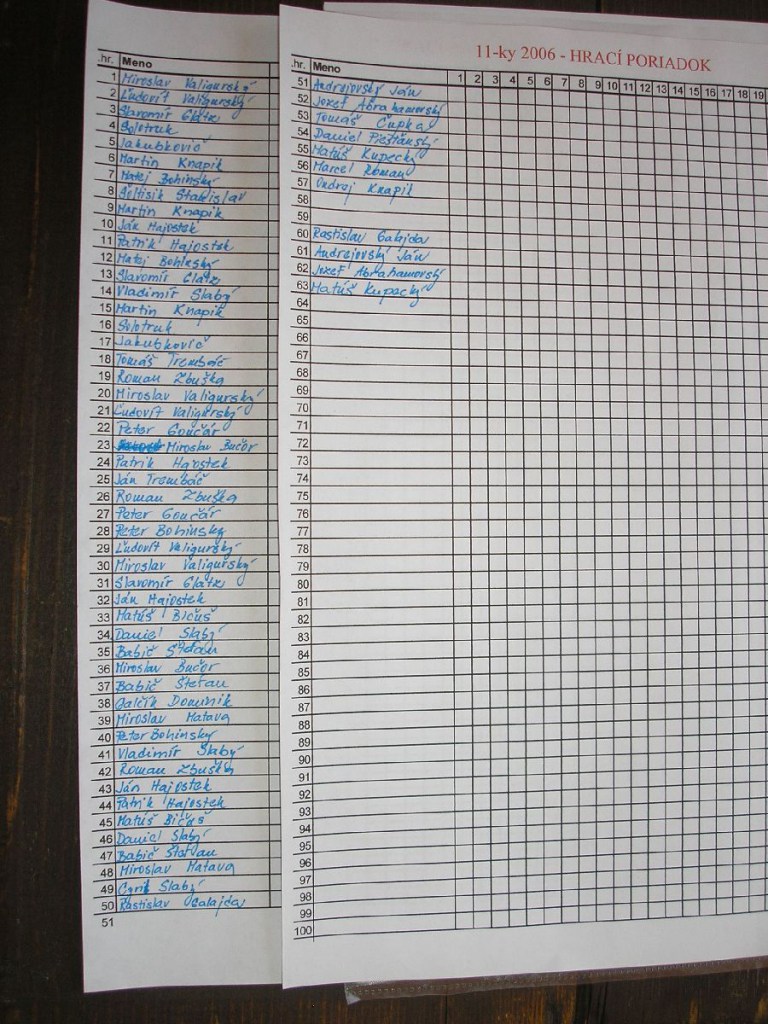 .hr. Meno
1 Miroslav Valigurský
2 Ľudovít Valigurský
3 Slavomír Glatz
4 Solotruk
5 Jakubkovič
6 Martin Knapik
7 Matej Bohinský
8 Šoltisik Stanislav
9 Martin Knapik
10 Ján Hajostek
11 Patrik Hajostek
12 Matej Bohinský
13 Slavomír Glatz
14 Vladimír Slabý
15 Martin Knapik
16 Solotruk
17 Jakubkovič
18 Tomáš Trembáč
19 Roman Zbuška
20 Miroslav Valigurský
21 Ľudovít Valigurský
22 Peter Gončár
23 Miroslav Bučor
24 Patrik Hajostek
25 Ján Trembáč
26 Roman Zbuška
27 Peter Gončár
28 Peter Bohinský
29 Ľudovít Valigurský
30 Miroslav Valigurský
31 Slavomír Glatz
32 Ján Hajostek
33 Matúš Bičuš
34 Daniel Slabý
35 Babič Štefan
36 Miroslav Bučor
37 Babič Štefan
38 Galčík Dominik
39 Miroslav Matava
40 Peter Bohinský
41 Vladimír Slabý
42 Roman Zbuška
43 Ján Hajostek
44 Patrik Hajostek
45 Matúš Bičuš
46 Daniel Slabý
47 Babič Štefan
48 Miroslav Matava
49 Cyril Slabý
50 Rastislav Galajda
51
11-ky 2006 - HRACÍ PORIADOK
.hr. Meno 1 2 3 4 5 6 7 8 9 10 11 12 13 14 15 16 17 18 19
51 Andrejovský Ján
52 Jozef Abrahamovský
53 Tomáš Čupka
54 Daniel Piešťanský
55 Matúš Kupecký
56 Marcel Roman
57 Ondrej Knapik
58
59
60 Rastislav Galajda
61 Andrejovský Ján
62 Jozef Abrahamovský
63 Matúš Kupecký
64
65
66
67
68
69
70
71
72
73
74
75
76
77
78
79
80
81
82
83
84
85
86
87
88
89
90
91
92
93
94
95
96
97
98
99
100